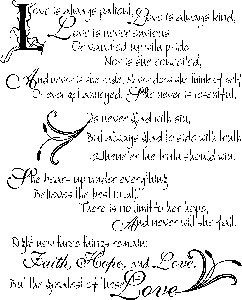 Love is always patient, Love is always kind,
Love is never envious
Or vaunted up with pride.
Nor is she conceited,
And never is she rude, Never does she think of self
Or ever get annoyed. She never is resentful,
Is never glad with sin,
But always glad to side with truth
Whene'er the truth should win.
She bears up under everything
Believes the best in all
There is no limit to her hope,
And never will she fall.
Right now three things remain:
Faith, Hope, and Love,
But the greatest of these Love